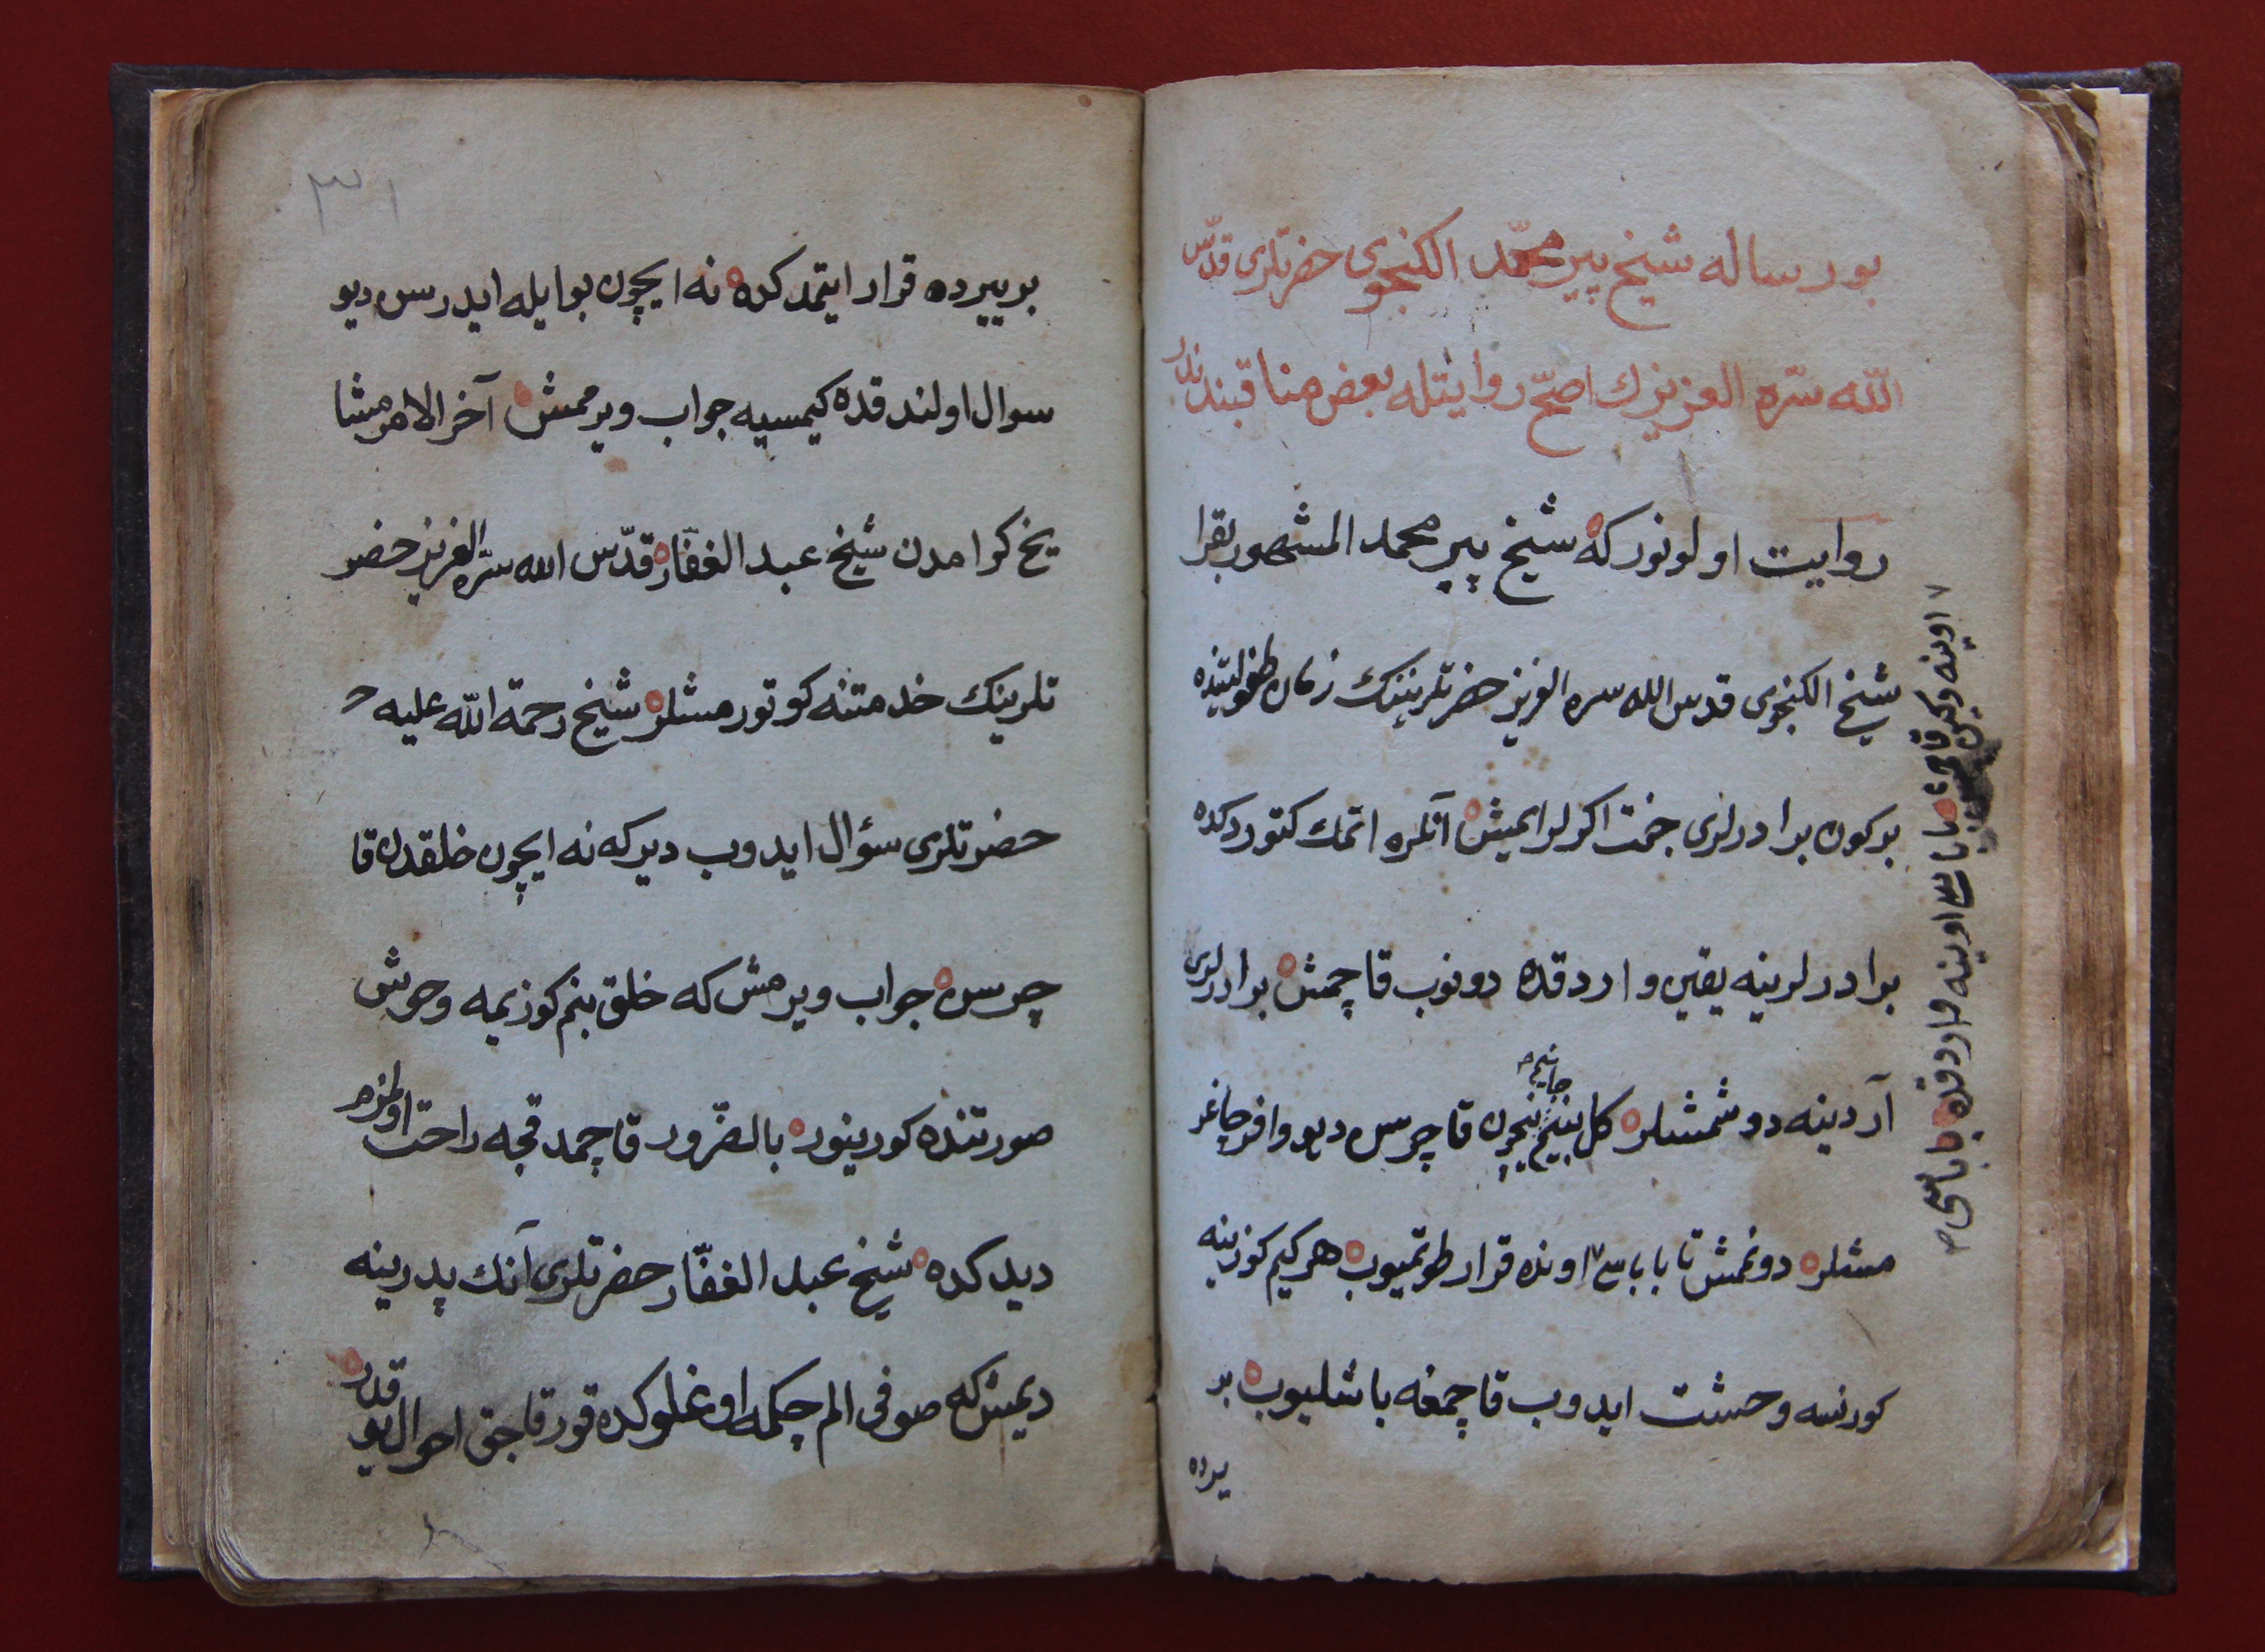 بو رساله شيخ پير محمّد الكنجوى حضرتلرى قدّس
اللّه سرّه العزيزك اصحّ روايتله بعض مناقبندندر
روايت اولونور كه شيخ پير محمد المشهور بقرا
شيخ الكنجوى قدس الله سره العزيز حضرتلرينك زمان طفوليتنده
بر كون برادرلرى جفت اكرلر ايمش آنلره اتمك كتورردكده
برادرلرينه يقين واردقده دونوب قاچمش برادرلرى
آردينه دوشمشلر كل بيچون قاچرسن ديو وافر چاغر
مشلر دونمش تا باباسى اونده قرار طوتميوب هر كيم كوزينه
كورنسه وحشت ايدوب قاچمغه باشليوب بر
يرده
اوينه وكين قاچمى باباسى اوينه واردقده باباسى
٣١
بر ييرده قرار ايتمدكده نه ايچون بوايله ايدرسن ديو
سوال اولندقده كيمسيه جواب ويرممش آخر الامر مشا
يخ كرامدن شيخ عبد الغفّار قدّس الله سرّه العزيز حضر
تلرينك خدمتنه كوتورمشلر شيخ رحمة اللّه عليه
حضرتلرى سؤال ايدوب ديركه نه ايچون خلقدن قا
چرسن جواب ويرمش كه خلق بنم كوزيمه وحوش
صورتنده كورينور بالضّرور قاچمدقجه راحت اولمزم
ديدكده شيخ عبد الغفّار حضرتلرى آنك پدرينه
ديمش كه صوفى الم چكمه اوغلوكده قورقاجق احوال يوقدر